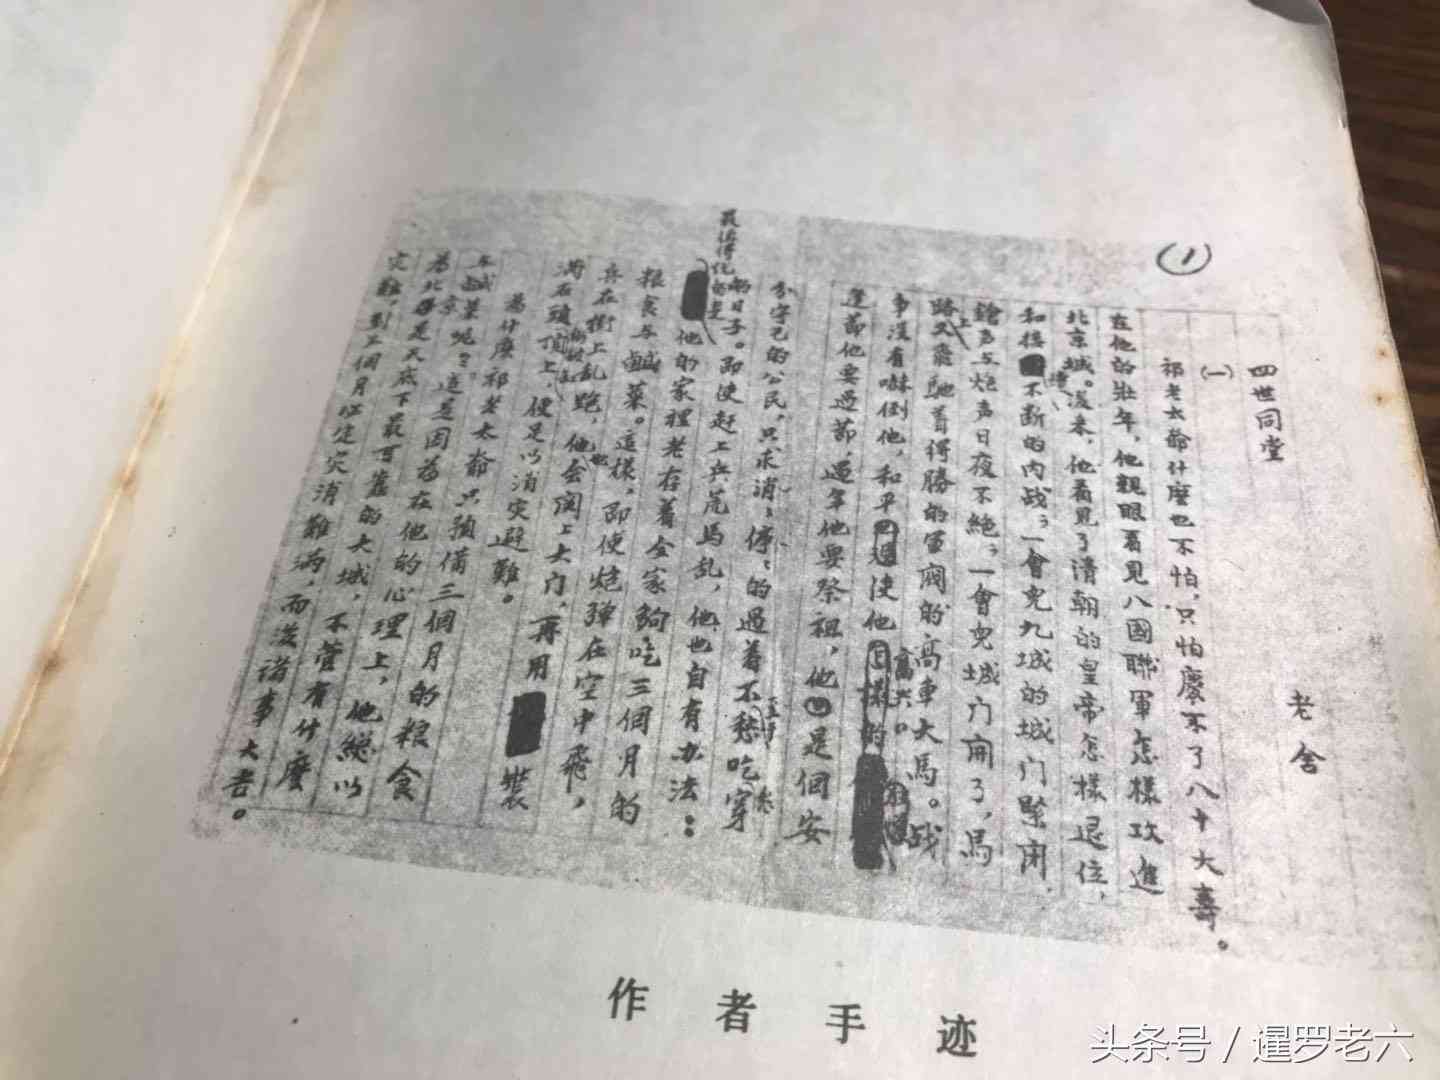 ①
四世同堂
老舍
(一)
祁老太爺什麼也不怕,只怕慶不了八十大壽。
在他的壯年,他親眼看見八國聯軍怎樣攻進
北京城。後來,他看見了清朝的皇帝怎樣退位,
和接續不断的内战;一會兒九城的城门緊闭,
鎗声与炮声日夜不絕;一會兒城门開了,馬
路上又飛馳着得勝的軍閥的高車大馬。战
事没有嚇倒他,和平使他高兴。
逢節他要過節,過年他要祭祖,他是個安
分守己的公民,只求消消停停的過着不愁吃穿
的日子。即使赶上兵荒馬乱,他也自有办法:
最值得説的是他的家裡老存着全家夠吃三個月的
粮食与鹹菜。這樣,即使炮弹在空中飛,
兵在街上乱跑,他也会関上大门,再用装
满石頭的破缸顶上,便足以消灾避難。
為什麼祁老太爺只預備三個月的粮食
与鹹菜呢?這是因為在他的心理上,他總以
為北京是天底下最可靠的大城,不管有什麼
灾難,到三個月必定灾消難满,而後諸事大吉。
作者手迹
头条号 / 暹罗老六